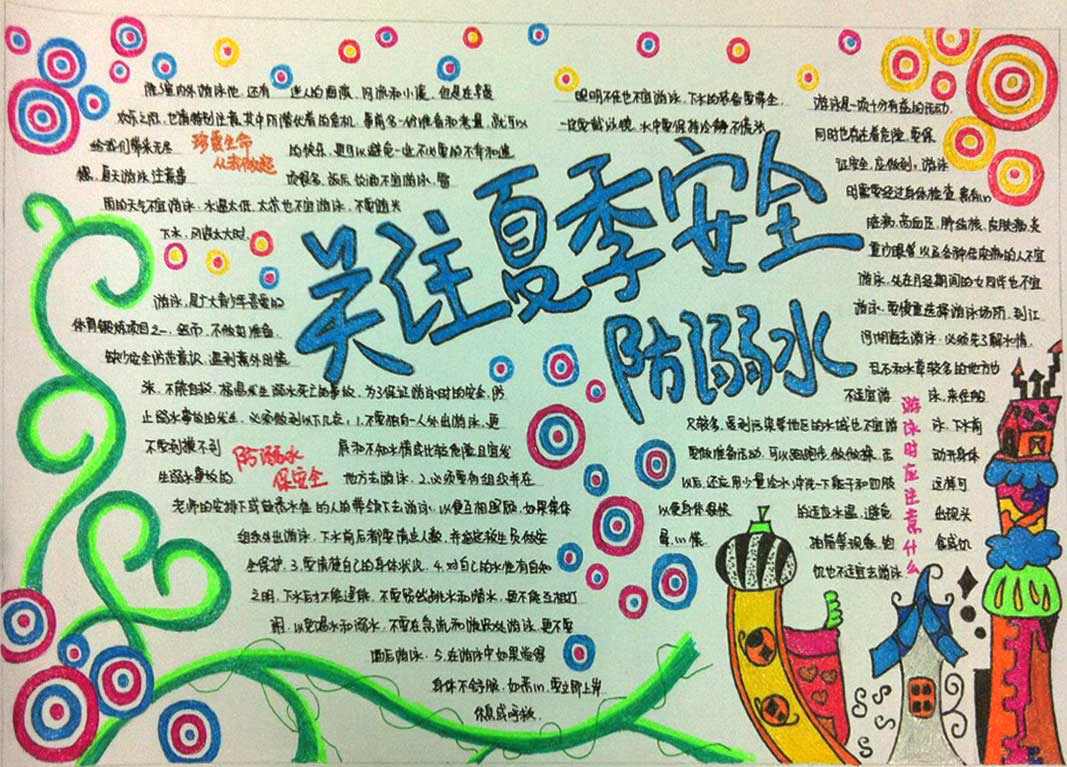 关注夏季安全
防溺水
除室内外游泳池,还有 迷人的海滨、河流和小溪,但是在享受
欢乐之前,也请特别注意其中所潜伏着的危机,事前多一份准备和考量,就可以
给我们带来无尽 的快乐,更可以避免一些不必要的不幸和遗
憾,夏天游泳注意事
雨的天气不宜游泳,水温太低、太凉也不宜游泳,不要随米
下水,风浪太大时,
珍爱生命
从我做起
游泳,是广大青少年喜爱的
体育锻炼项目之一,然而,不做好准备、
缺少安全防范意识,遇到意外时慌
止溺水事故的发生,必须做到以下几点:1.不要独自一人外出游泳,更
不要到摸不到
生溺水事故的 地方去游泳,2.必须要有组织并在
防溺水
保安全
老师的安排下或熟悉水性的人的带领下去游泳,以便互相照顾,如果集体
组织外出游泳,下水前后都要清点人数,并指定救生员做安
全保护,3.要清楚自己的身体状况,4.对自己的水性有自知
之明,下水后不能逞能,不要贸然跳水和潜水,更不能互相打
闹,以免喝水和溺水,不要在急流和漩涡处游泳,更不要
酒后游泳,5.在游泳中如果觉得
身体不舒服,如 要立即上岸
休息或呼救.
眼明不佳也不宜游泳,下水的装备要带全,
一定要戴泳镜,水中要保持冷静不慌张
游泳是一项十分有益的活动,
同时也存在着危险,要保
证安全,应做到:游泳
时需要经过身体检查,患有
脏病、高血压、肺结核、皮肤病、及
重沙眼等以及各种传染病的人不宜
游泳,处在月经期间的女同学也不宜
游泳,要慎重选择游泳场所,到江
河湖海去游泳,必须先了解水情,
乱石和水草较多的地方也
不适宜游 泳,来往船
只较多、受到污染等地区的水域也不宜游 泳,下水前
要做准备活动,可以跑跑步、做做操,活 动开身体
以后,还应用少量冷水冲洗一下躯干和四肢 这样可
以使身体很快 的适应水温,避免 出现头
游泳时应注意什么
抽筋等现象,饱 食或饥
饥也不适宜去游泳